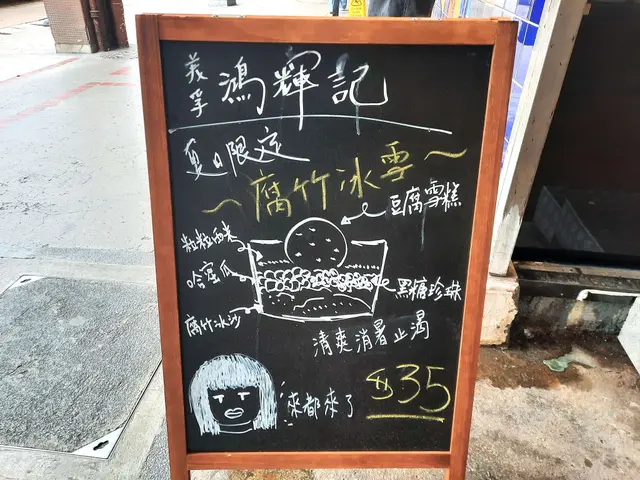 義孚
鴻輝記
夏日限定
～腐竹冰雪～
豆腐雪糕
粒粒西米
哈蜜瓜
黑糖珍珠
腐竹冰沙
清爽消暑止渴
來都來了
$35